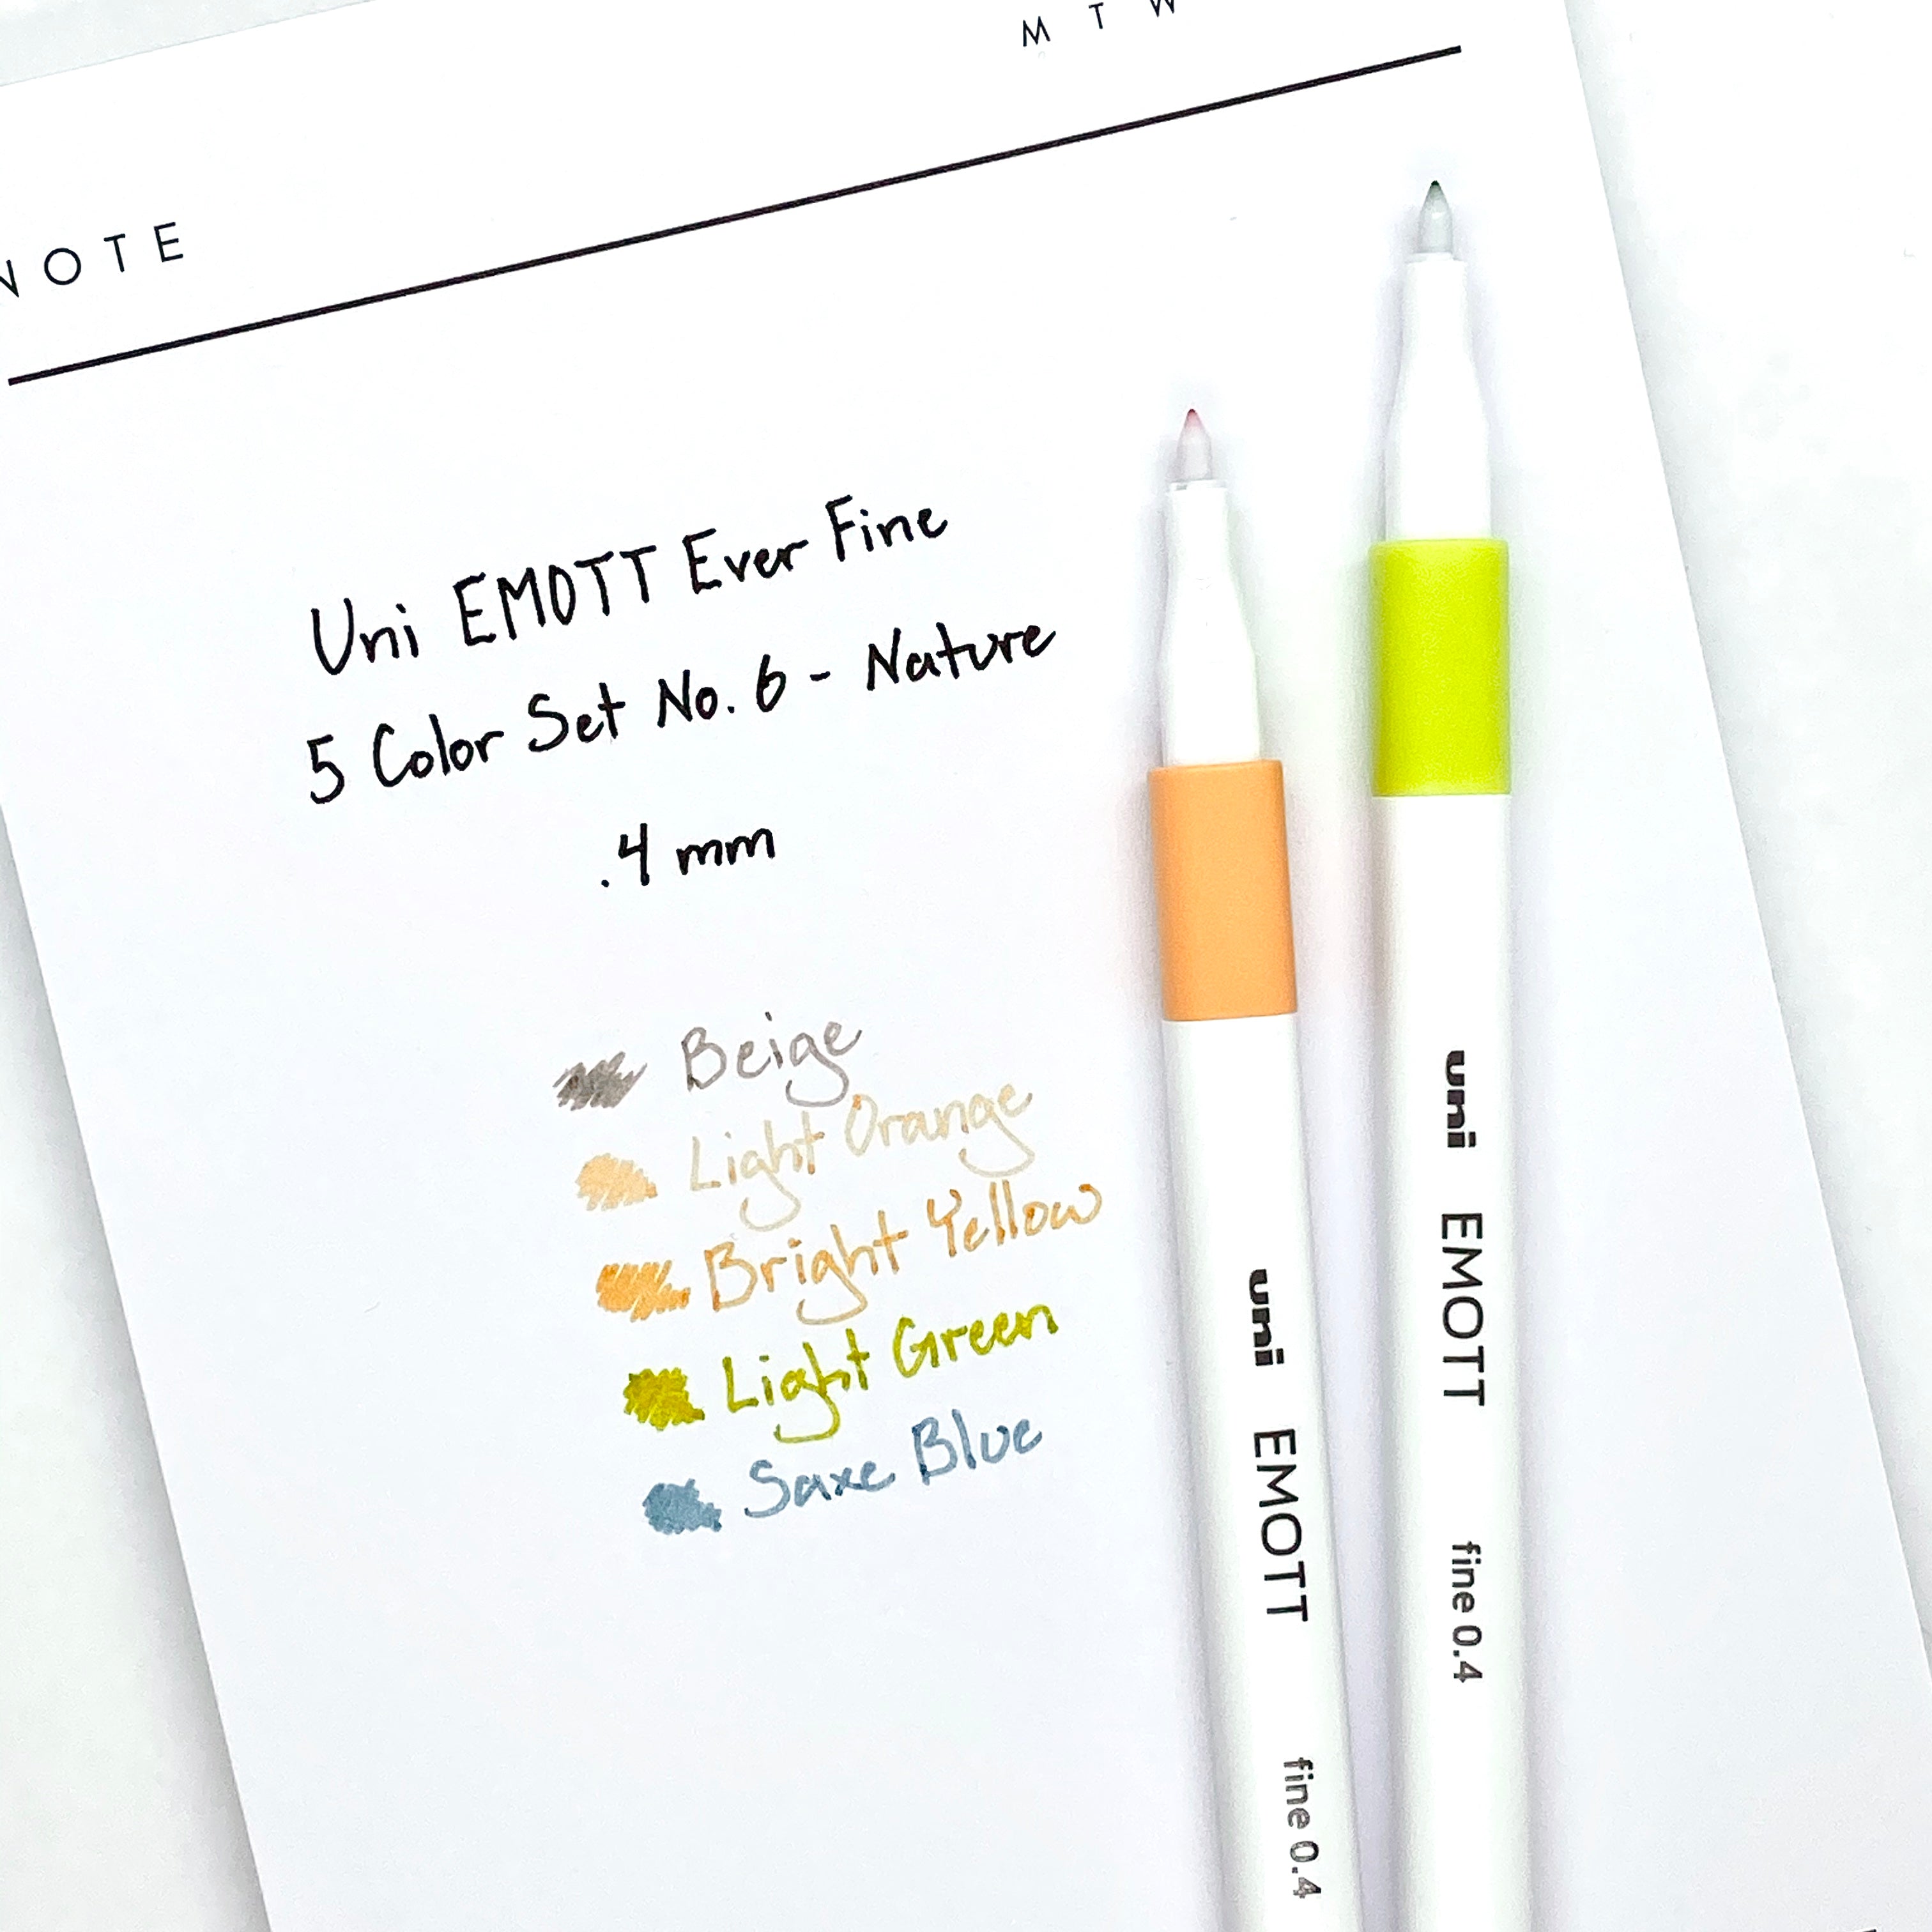 M T W
NOTE
Uni EMOTT Ever Fine
5 Color Set No. 6 - Nature
.4 mm
Beige
Light Orange
Bright Yellow
Light Green
Saxe Blue
uni EMOTT fine 0.4
uni EMOTT fine 0.4